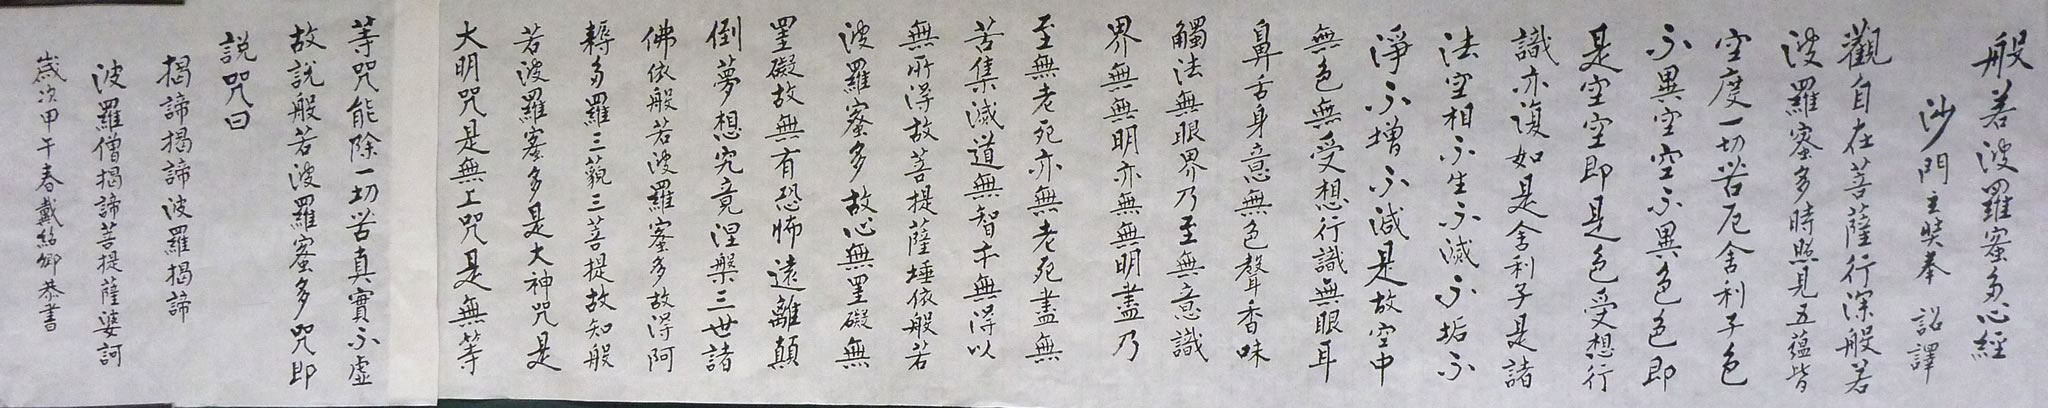 般若波羅蜜多心經
沙門玄奘奉　詔譯
觀自在菩薩行深般若
波羅蜜多時照見五蘊皆
空度一切苦厄舍利子色
不異空空不異色色即
是空空即是色受想行
識亦復如是舍利子是諸
法空相不生不滅不垢不
淨不增不減是故空中
無色無受想行識無眼耳
鼻舌身意無色聲香味
觸法無眼界乃至無意識
界無無明亦無無明盡乃
至無老死亦無老死盡無
苦集滅道無智亦無得以
無所得故菩提薩埵依般若
波羅蜜多故心無罣礙無
罣礙故無有恐怖遠離顛
倒夢想究竟涅槃三世諸
佛依般若波羅蜜多故得阿
耨多羅三藐三菩提故知般
若波羅蜜多是大神咒是
大明咒是無上咒是無等
等咒能除一切苦真實不虛
故說般若波羅蜜多咒即
說咒曰
揭諦揭諦波羅揭諦
波羅僧揭諦菩提薩婆訶
歲次甲午春戴紹卿恭書